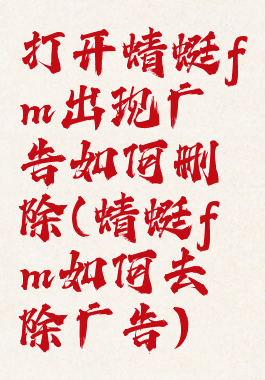 打开蜻蜓f
m出现广
告如何删
除(蜻蜓f
m如何去
除广告)